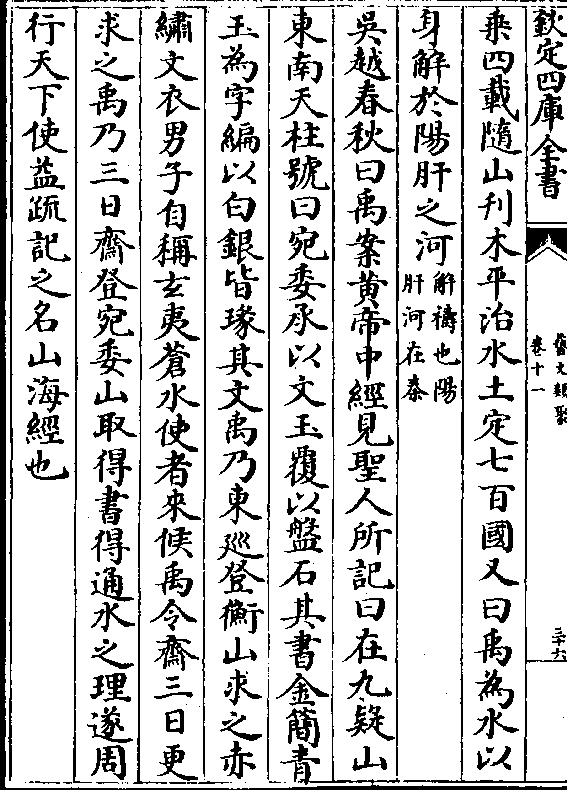 欽定四庫全書
藝文類聚
卷十一
三十六
乘四載隨山刋木平治水土定七百國又曰禹為水以
身解於陽肝之河
解禱也陽
肝河在秦
吳越春秋曰禹案黄帝中經見聖人所記曰在九疑山
東南天柱號曰宛委承以文玉覆以盤石其書金簡青
玉為字編以白銀皆瑑其文禹乃東廵登衡山求之赤
繡文衣男子自稱玄夷蒼水使者來候禹令齋三日更
求之禹乃三日齋登宛委山取得書得通水之理遂周
行天下使益疏記之名山海經也